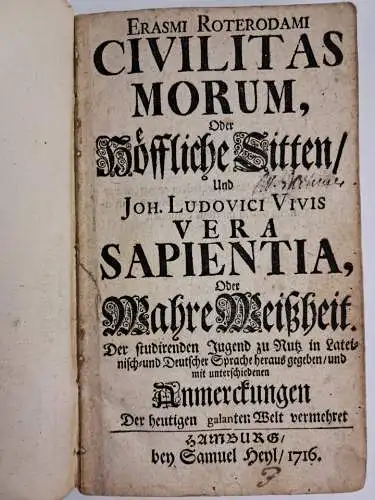 ERASMI ROTERODAMI
CIVILITAS
MORUM,
Oder
Höffliche Sitten/
Und
JOH. LUDOVICI VIVIS
VERA
SAPIENTIA,
Oder
Wahre Weißheit.
Der studirenden Jugend zu Nutz in Latei-
nisch-und Deutscher Sprache heraus gegeben/und
mit unterschiedenen
Anmerckungen
Der heutigen galanten Welt vermehret
HAMBURG/
bey Samuel Heyl/1716.